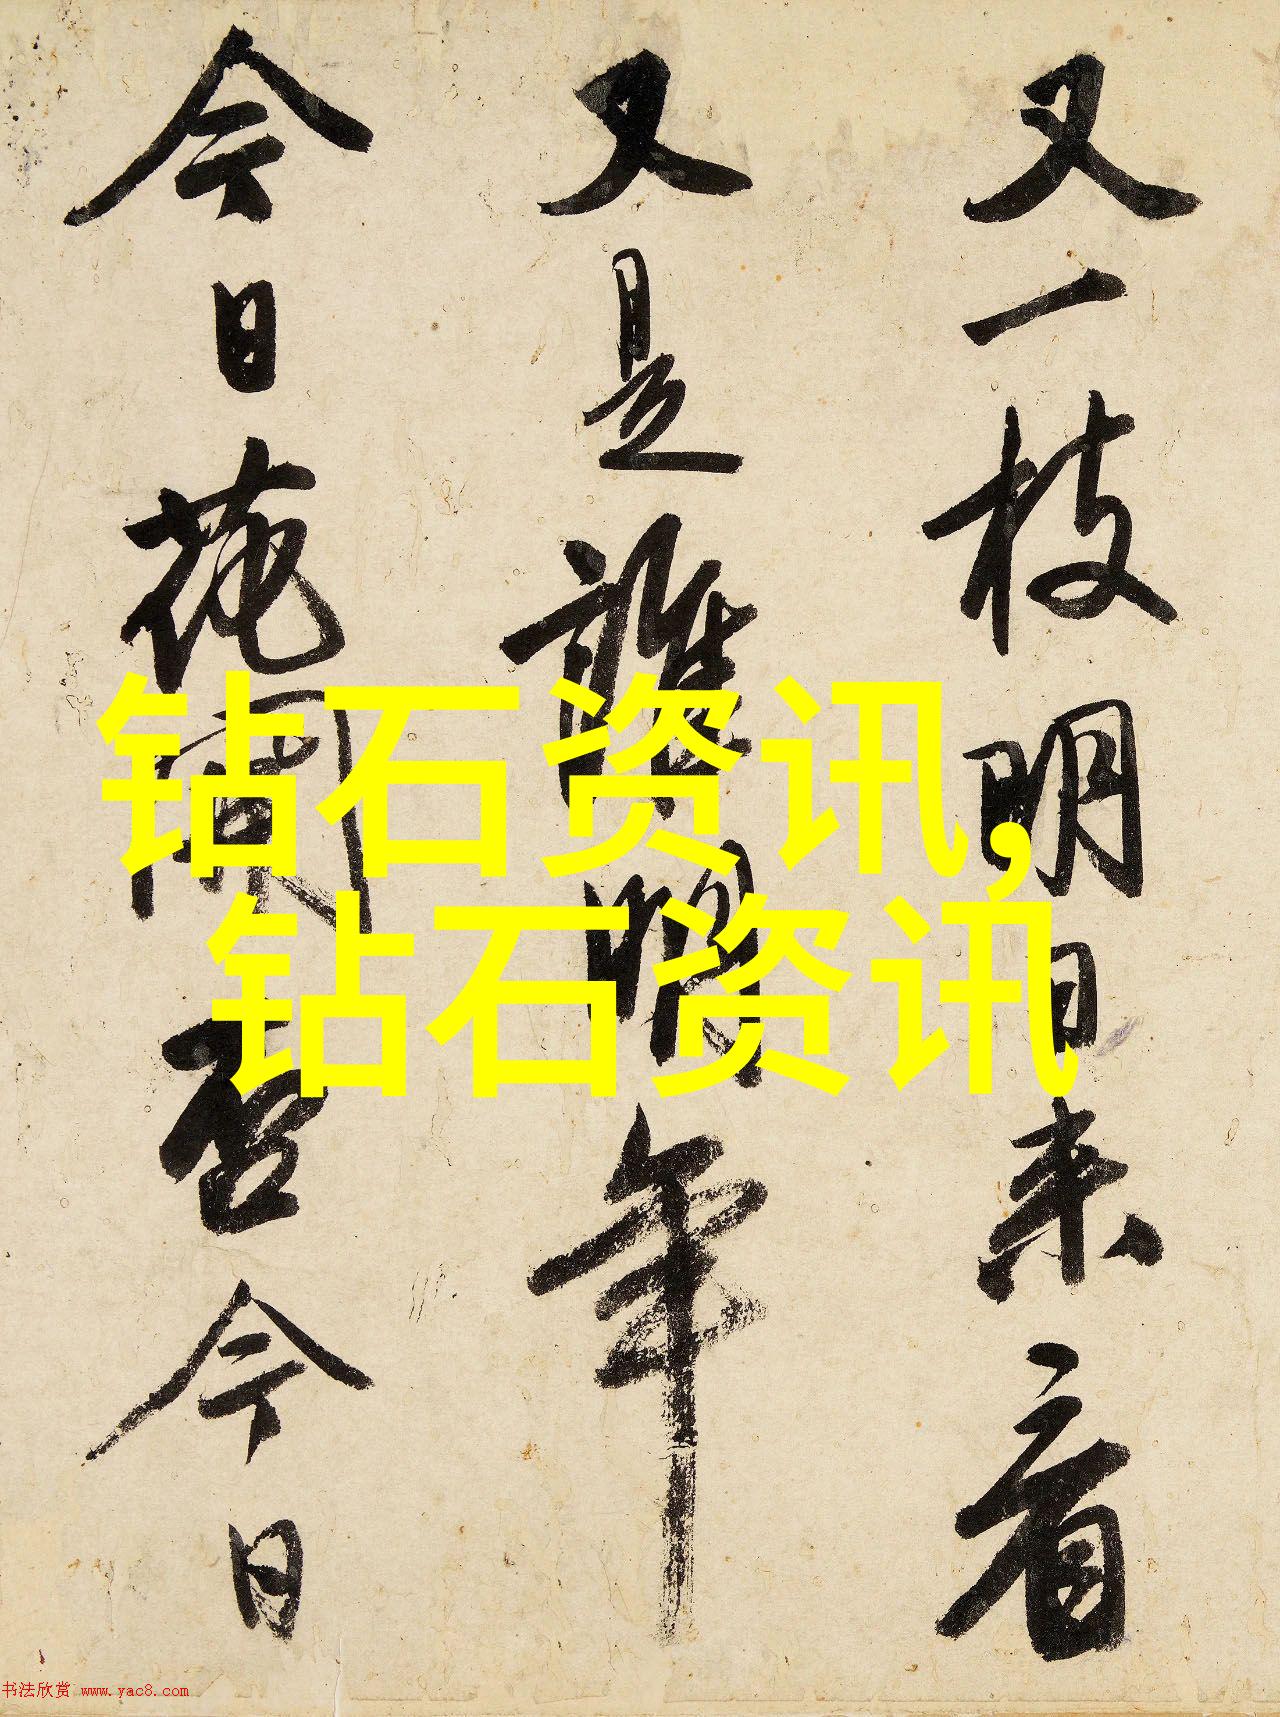 又一枝明日来看
又是誰明年
今日花開否今日
钻石资讯,
钻石资讯
书法欣赏 www.yac8.com